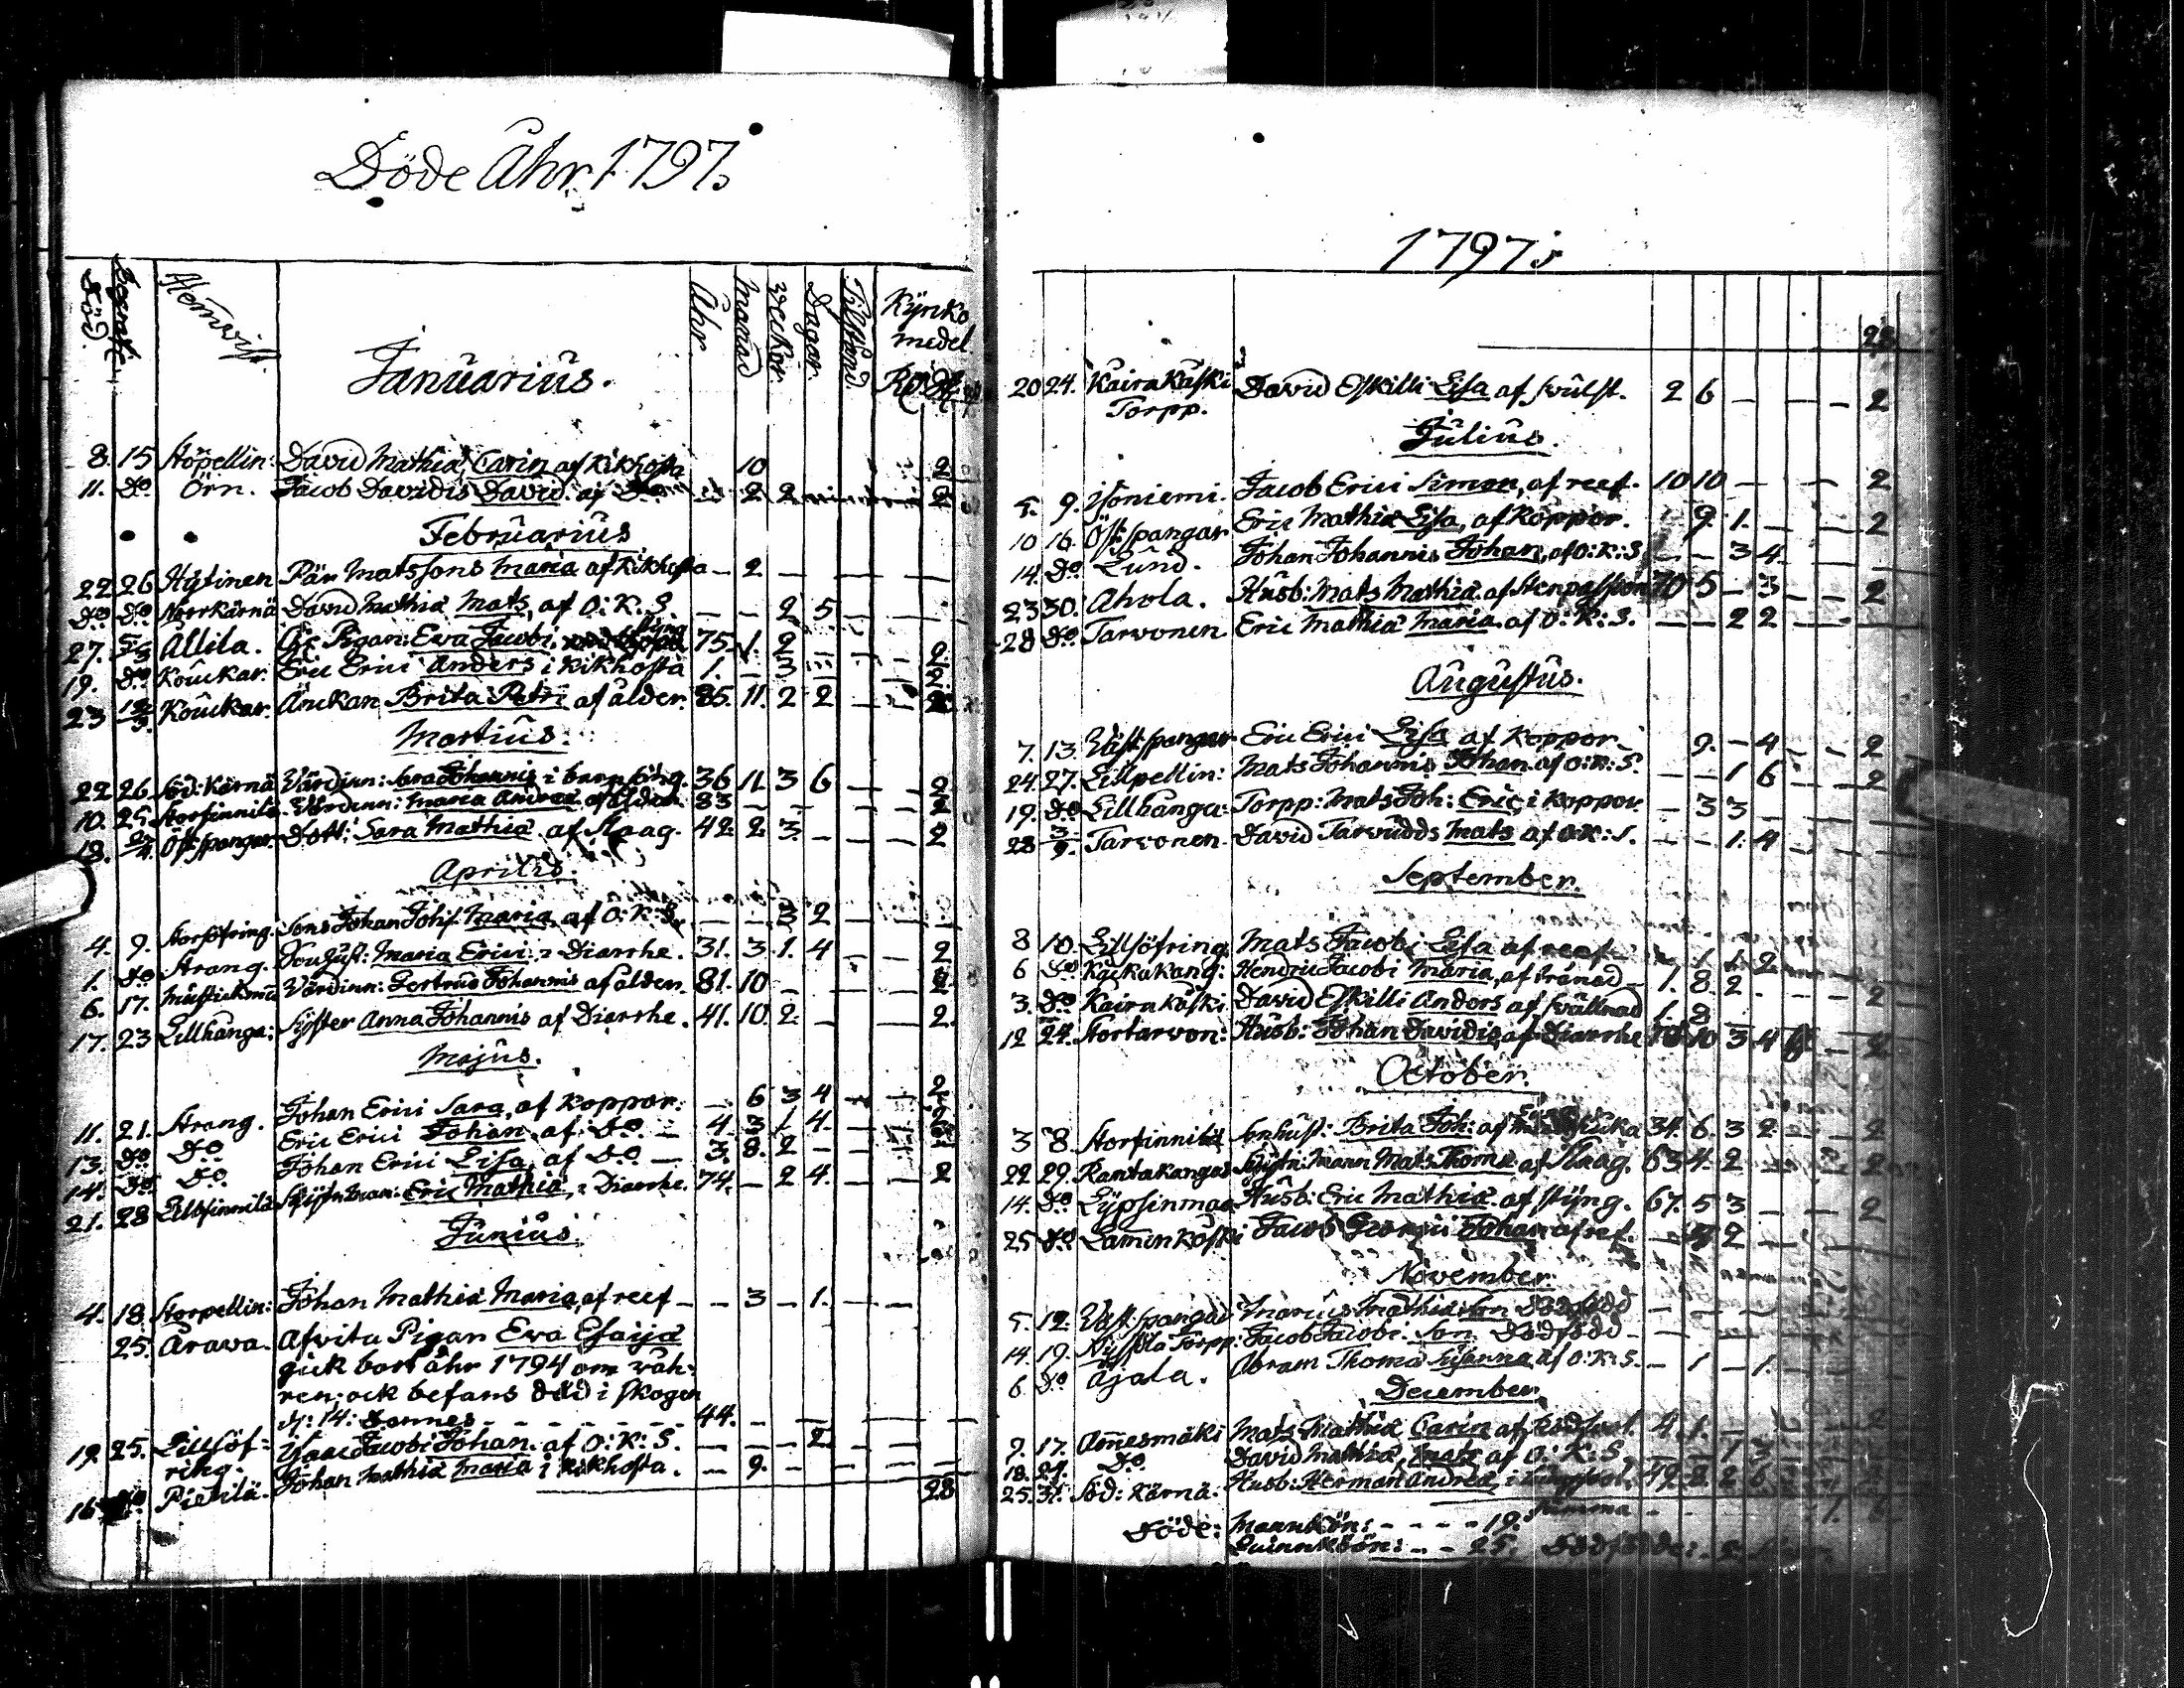 Döde Åhr 1797.
Död. Begrafn. Hemvist. Åhr Månad Veckor Dagar. Tilstånd Kyrko medel.
Januarius.
8. 15 Stöpellin: David Mathiæ Carin af Kikhosta 10 2
11. Do Örn. Jacob Davidis David af Do 2 2 2
Februarius
22 26 Hytinen Pär Matssons Maria af Kikhosta — 2 — — — —
Do Do Norrkärnä David Mathiæ Mats, af O: K: S. — — 2 5 —
27. 5/3 Allila. Gl. Pigan: Eva Jacobi, 75 1. 2 — — 2
19. Do Koukar: Eric Erici Anders i Kikhosta 1. — 3 — — 2.
23 12/3. Koukar. Änckan Brita Petri af ålder. 85. 11. 2 2 — 2
Martius.
22 26 Söd: Kärnä Värdinn: Sara Johannis i barnsäng. 36 11. 3 6 — 2
10. 25 Storfinnilä Värdinn: Maria Andreæ af ålder 83 — — — 2
18. 2/4. Öst:spangar Dott: Sara Mathiæ af Slaag. 42. 2. 3. — — 2
Aprilis.
4. 9. Storsöfring: Sons Johan Johs. Maria af O: K: S. — — 3 2 — —
1. Do Strang. Sonhust: Maria Erici i Diarrhe. 31. 3. 1. 4 — 2
6. 17. Värdinn: Gertrud Johannis af ålder. 81. 10 — — — 2.
17. 23 Lillkånga: Syster Anna Johannis af Diarrhe. 41. 10. 2. — — 2.
Majus.
11. 21. Strang. Johan Erici Sara, af Koppor. — 6 3 4 — 2
13. Do Do Eric Erici Johan, af Do — 4. 3 1. 4. —
14. Do Do Johan Erici Lisa, af Do — 3. 8. 2 —
21. 28 Lillfinnilä Eric Mathiæ, i Diarrhe. 74. — 2 4. — 2
Junius.
4. 18. Storpellin: Johan Mathiæ Maria, af reef — — 3 — 1. — —
25. Arawa. Afvita Pigan Eva Esaijæ
gick bort åhr 1794 om våh-
ren, ock befans död i skogen
d: 14: dennes — — — — 44. — — — —
19. 25. Lillsöf- Isaac Jacobi Johan. af O: K: S. — — — 2. — —
ring.
16. Do Pietilä. Johan Mathiæ Maria i Kikhosta. — 9. — — — —
28
1797.
28
20 24. Kairakåski David Eskilli Lisa af svulst. 2 6 — — — 2
Torpp.
Julius.
5. 9. Isoniemi. Jacob Erici Simon, af reef. 10 10 — — — 2
10 16. Öst:spangar Eric Mathiæ Lisa, af Koppor. 1. 9. 1. — — 2
14. Do Lund. Johan Johannis Johan, af O: K: S — — 3 4 —
23 30. Ahola. Husb: Mats Mathiæ af Stenpassion 70 5 — 3 — 2
28 Do Tarvonen Eric Mathiæ Maria af O: K: S. — — 2 2 — —
Augustus.
7. 13. Väst:spangar Eric Erici Lisa af Koppor — 9. — 4 — — 2
24. 27. Lillpellin: Mats Johannis Johan af O: K: S. — — 1 6 — — 2
19. Do Lillkånga: Torpp: Mats Joh: Eric i Koppor — 3 3 — — —
28 3/9. Tarvonen David Tarvudds Mats af O: K: S. — — 1. 4 — —
September.
8 10. Lillsöfring Mats Jacobi Lisa af reef — 1 1. 2
6 Do Hendric Jacobi Maria, af tränad — 1. 8. 2
3. Do Kairakåski David Eskilli Anders af svullnad 1. 8 — 2
12 24. Stortarvon: Husb: Johan Davidis, af Diarrhe 10 3 4 — 2
October.
3 8 Storfinnilä Sonhust: Brita Joh: af 34. 6. 3 2 — — 2
22 29. Rantakangas Mann Mats Thomæ af Slaag. 63 4. 2 — 2
14. Do Lypsinmaa Husb: Eric Mathiæ af styng. 67. 5 3 — — 2
25 Do Lamminkoski Jacob Johan af ref. — 2 — — —
November.
5. 12. Väst:spangar Mathiæ Son Dödfödd —
14. 19. Torpp: Jacob Jacobi: Son Dödfödd —
6. Do Ajala. Abram Thomæ Susanna af O: K: S. — 1 — 1. —
December.
9. 17. Ammesmäki Mats Mathiæ Carin af 4 1. — 2
18. 24. Do David Mathiæ Mats af O: K: S — — 1 3
25. 31. Söd: Kärnä: Husb: Herman Andreæ 49. 8. 2 6
Summa
Döde: Mannkön: — — — — 19.
Quinnkön: — — 25. Dödfödde: 2.